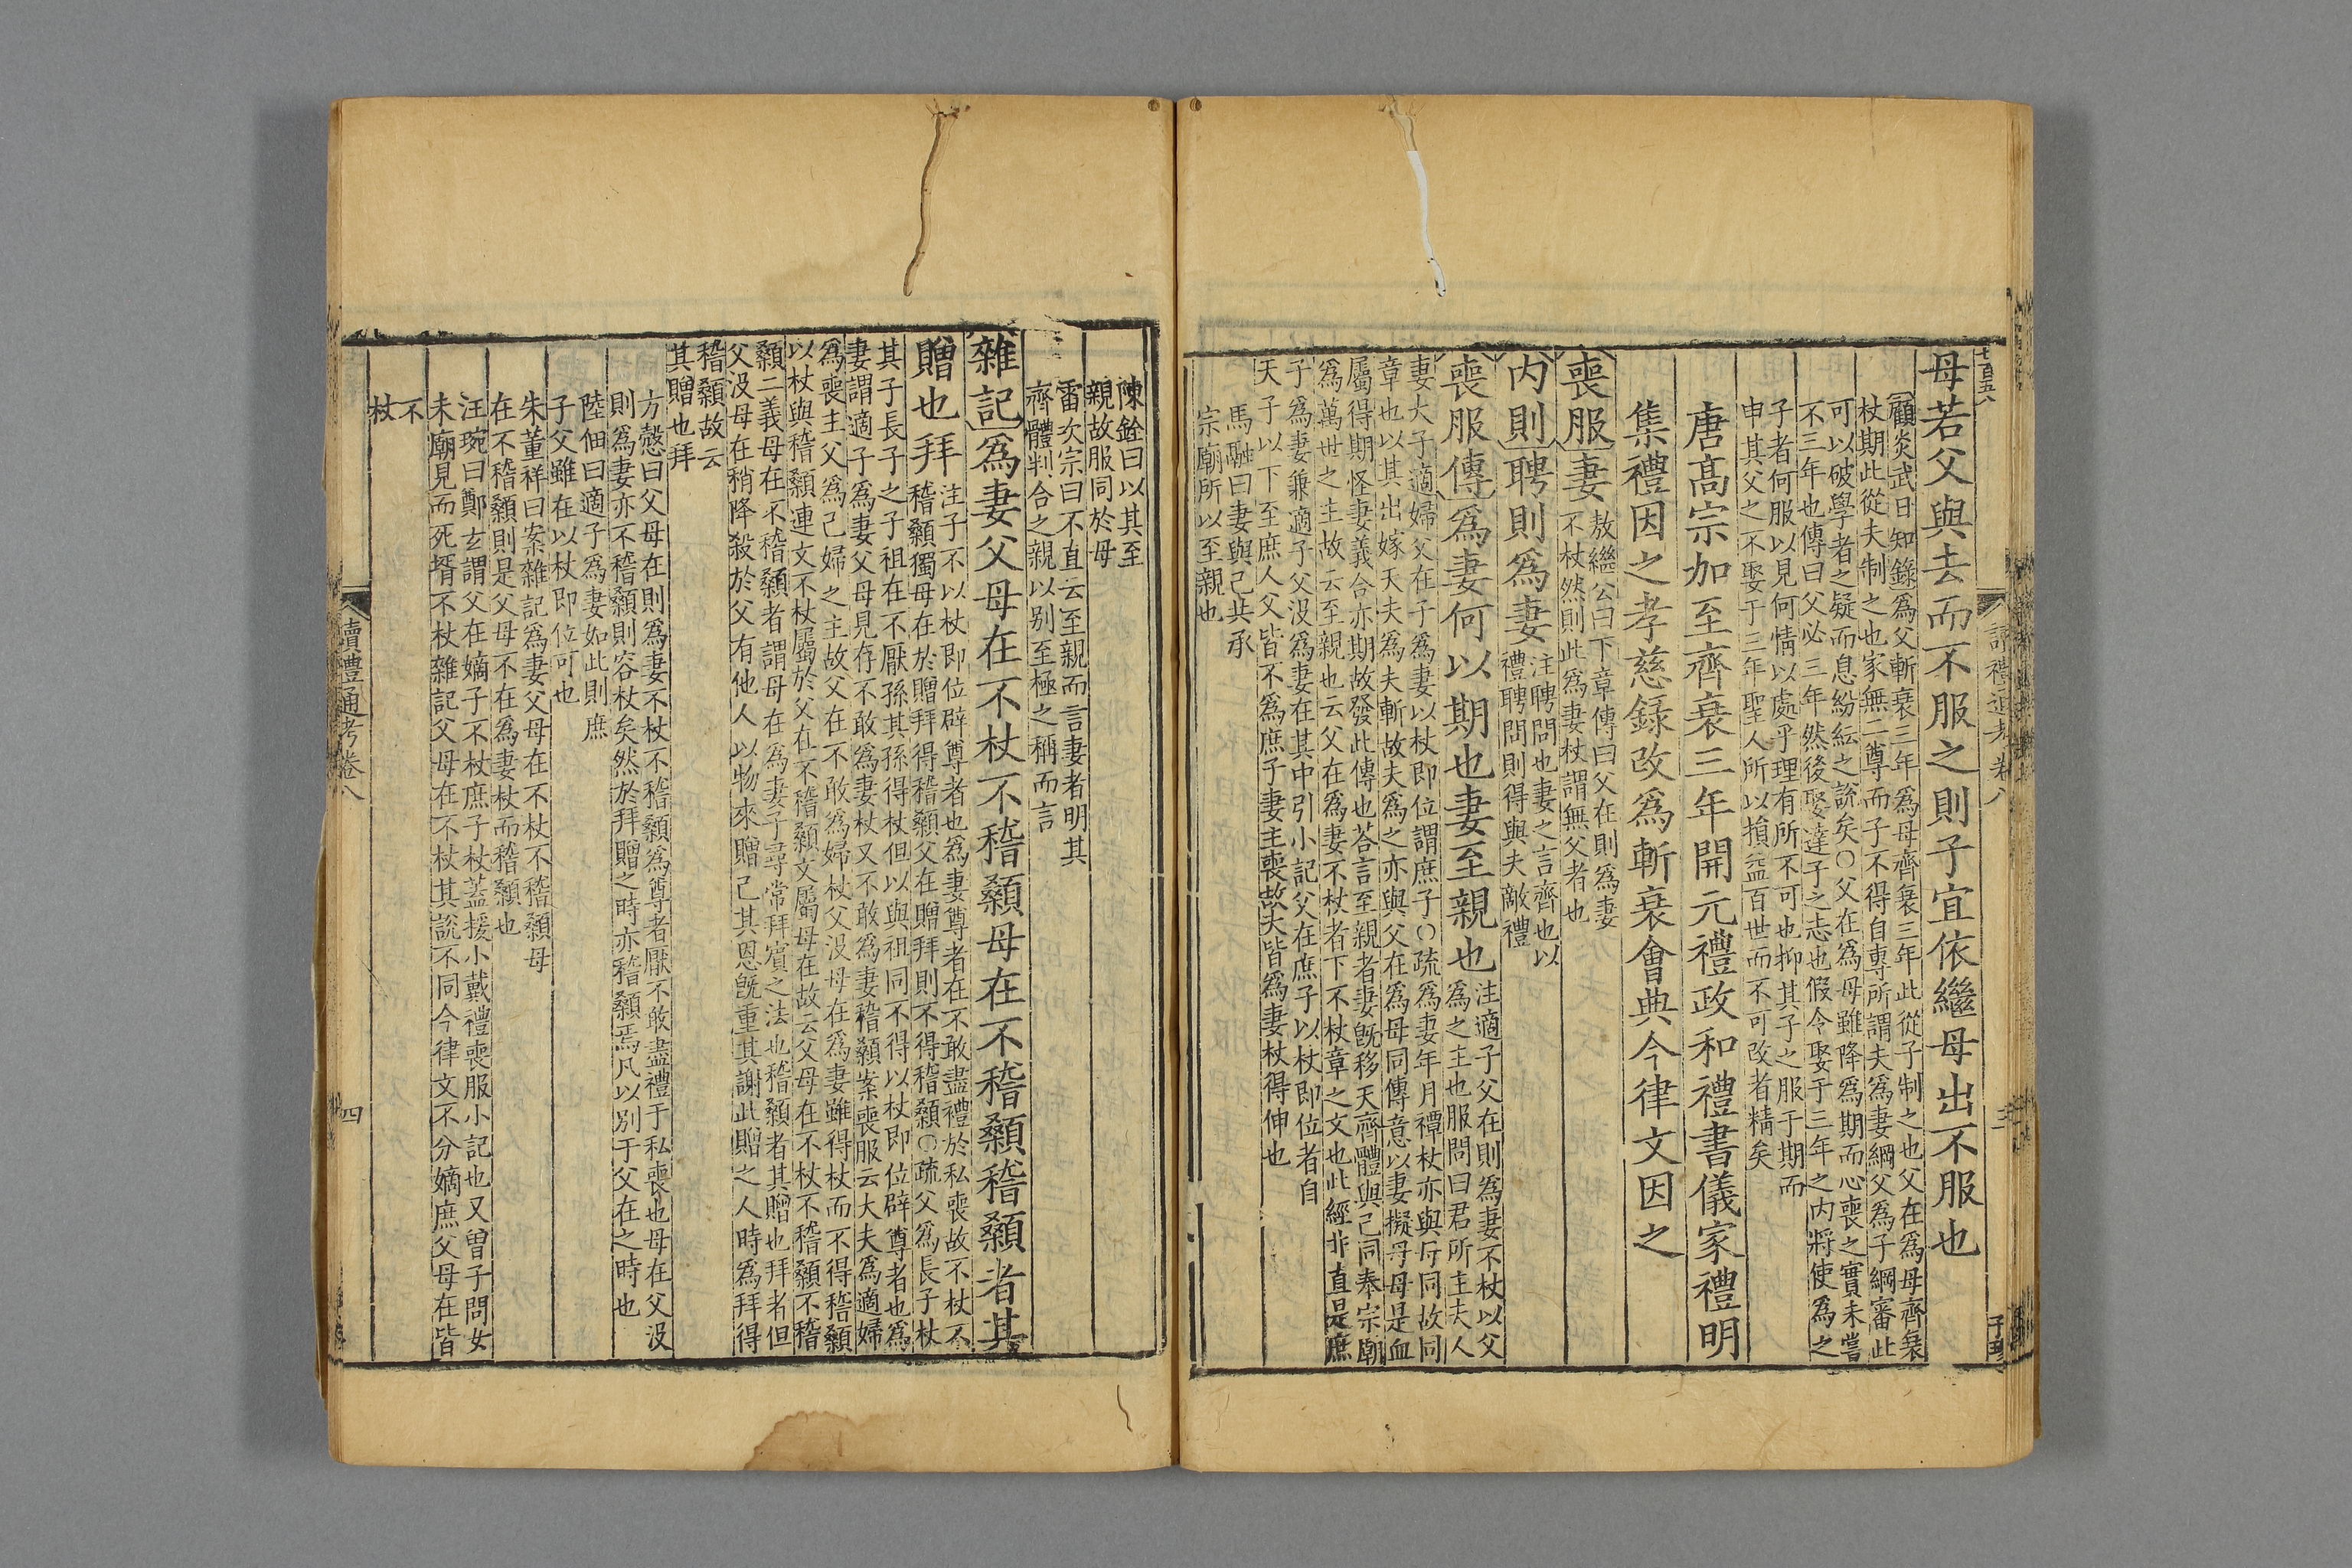 七百五八
讀禮通考卷八
三
母若父與去而不服之則子宜依繼母出不服也
顧炎武日知錄爲父斬衰三年爲母齊衰三年此從子制之也父在爲母齊衰
杖期此從夫制之也家無二尊而子不得自專所謂夫爲妻綱父爲子綱審此
可以破學者之疑而息紛紜之說矣○父在爲母雖降爲期而心喪之實未嘗
不三年也傳曰父必三年然後娶達子之志也假令娶于三年之内將使爲之
子者何服以見何情以處乎理有所不可也抑其子之服于期而
申其父之不娶于三年聖人所以損益百世而不可改者精矣
唐髙宗加至齊衰三年開元禮政和禮書儀家禮明
集禮因之孝慈錄改爲斬衰會典今律文因之
喪服妻
敖繼公曰下章傳曰父在則爲妻
不杖然則此爲妻杖謂無父者也
内則聘則爲妻
注聘問也妻之言齊也以
禮聘問則得與夫敵禮
喪服傳爲妻何以期也妻至親也
注適子父在則爲妻不杖以父
爲之主也服問曰君所主夫人
妻大子適婦父在子爲妻以杖即位謂庶子○疏爲妻年月禫杖亦與母同故同
章也以其出嫁天夫爲夫斬故夫爲之亦與父在爲母同傳意以妻擬母母是血
屬得期怪妻義合亦期故發此傳也荅言至親者妻旣移天齊體與己同奉宗廟
爲萬世之主故云至親也云父在爲妻不杖者下不杖章之文也此經非直是庶
子爲妻兼適子父没爲妻在其中引小記父在庶子以杖即位者自
天子以下至庶人父皆不爲庶子妻主喪故夫皆爲妻杖得伸也
馬融曰妻與己共承
宗廟所以至親也
陳銓曰以其至
親故服同於母
雷次宗曰不直云至親而言妻者明其
齊體判合之親以别至極之稱而言
雜記爲妻父母在不杖不稽顙母在不稽顙稽顙者其
贈也拜
注子不以杖即位辟尊者也爲妻尊者在不敢盡禮於私喪故不杖不
稽顙獨母在於贈拜得稽顙父在贈拜則不得稽顙○疏父爲長子杖
其子長子之子祖在不厭孫其孫得杖但以與祖同不得以杖即位辟尊者也爲
妻謂適子爲妻父母見存不敢爲妻杖又不敢爲妻稽顙案喪服云大夫爲適婦
爲喪主父爲己婦之主故父在不敢爲婦杖父没母在爲妻雖得杖而不得稽顙
以杖與稽顙連文不杖屬於父在不稽顙文屬母在故云父母在不杖不稽顙不稽
顙二義母在不稽顙者謂母在爲妻子尋常拜賓之法也稽顙者其贈也拜者但
父没母在稍降殺於父有他人以物來贈己其恩旣重其謝此贈之人時爲拜得
稽顙故云
其贈也拜
方慤曰父母在則爲妻不杖不稽顙爲尊者厭不敢盡禮于私喪也母在父没
則爲妻亦不稽顙則容杖矣然於拜贈之時亦稽顙焉凡以别于父在之時也
陸佃曰適子爲妻如此則庶
子父雖在以杖即位可也
朱董祥曰案雜記爲妻父母在不杖不稽顙母
在不稽顙則是父母不在爲妻杖而稽顙也
汪琬曰鄭玄謂父在嫡子不杖庶子杖蓋援小戴禮喪服小記也又曾子問女
未廟見而死壻不杖雜記父母在不杖其說不同今律文不分嫡庶父母在皆
不
杖
讀禮通考卷八
四